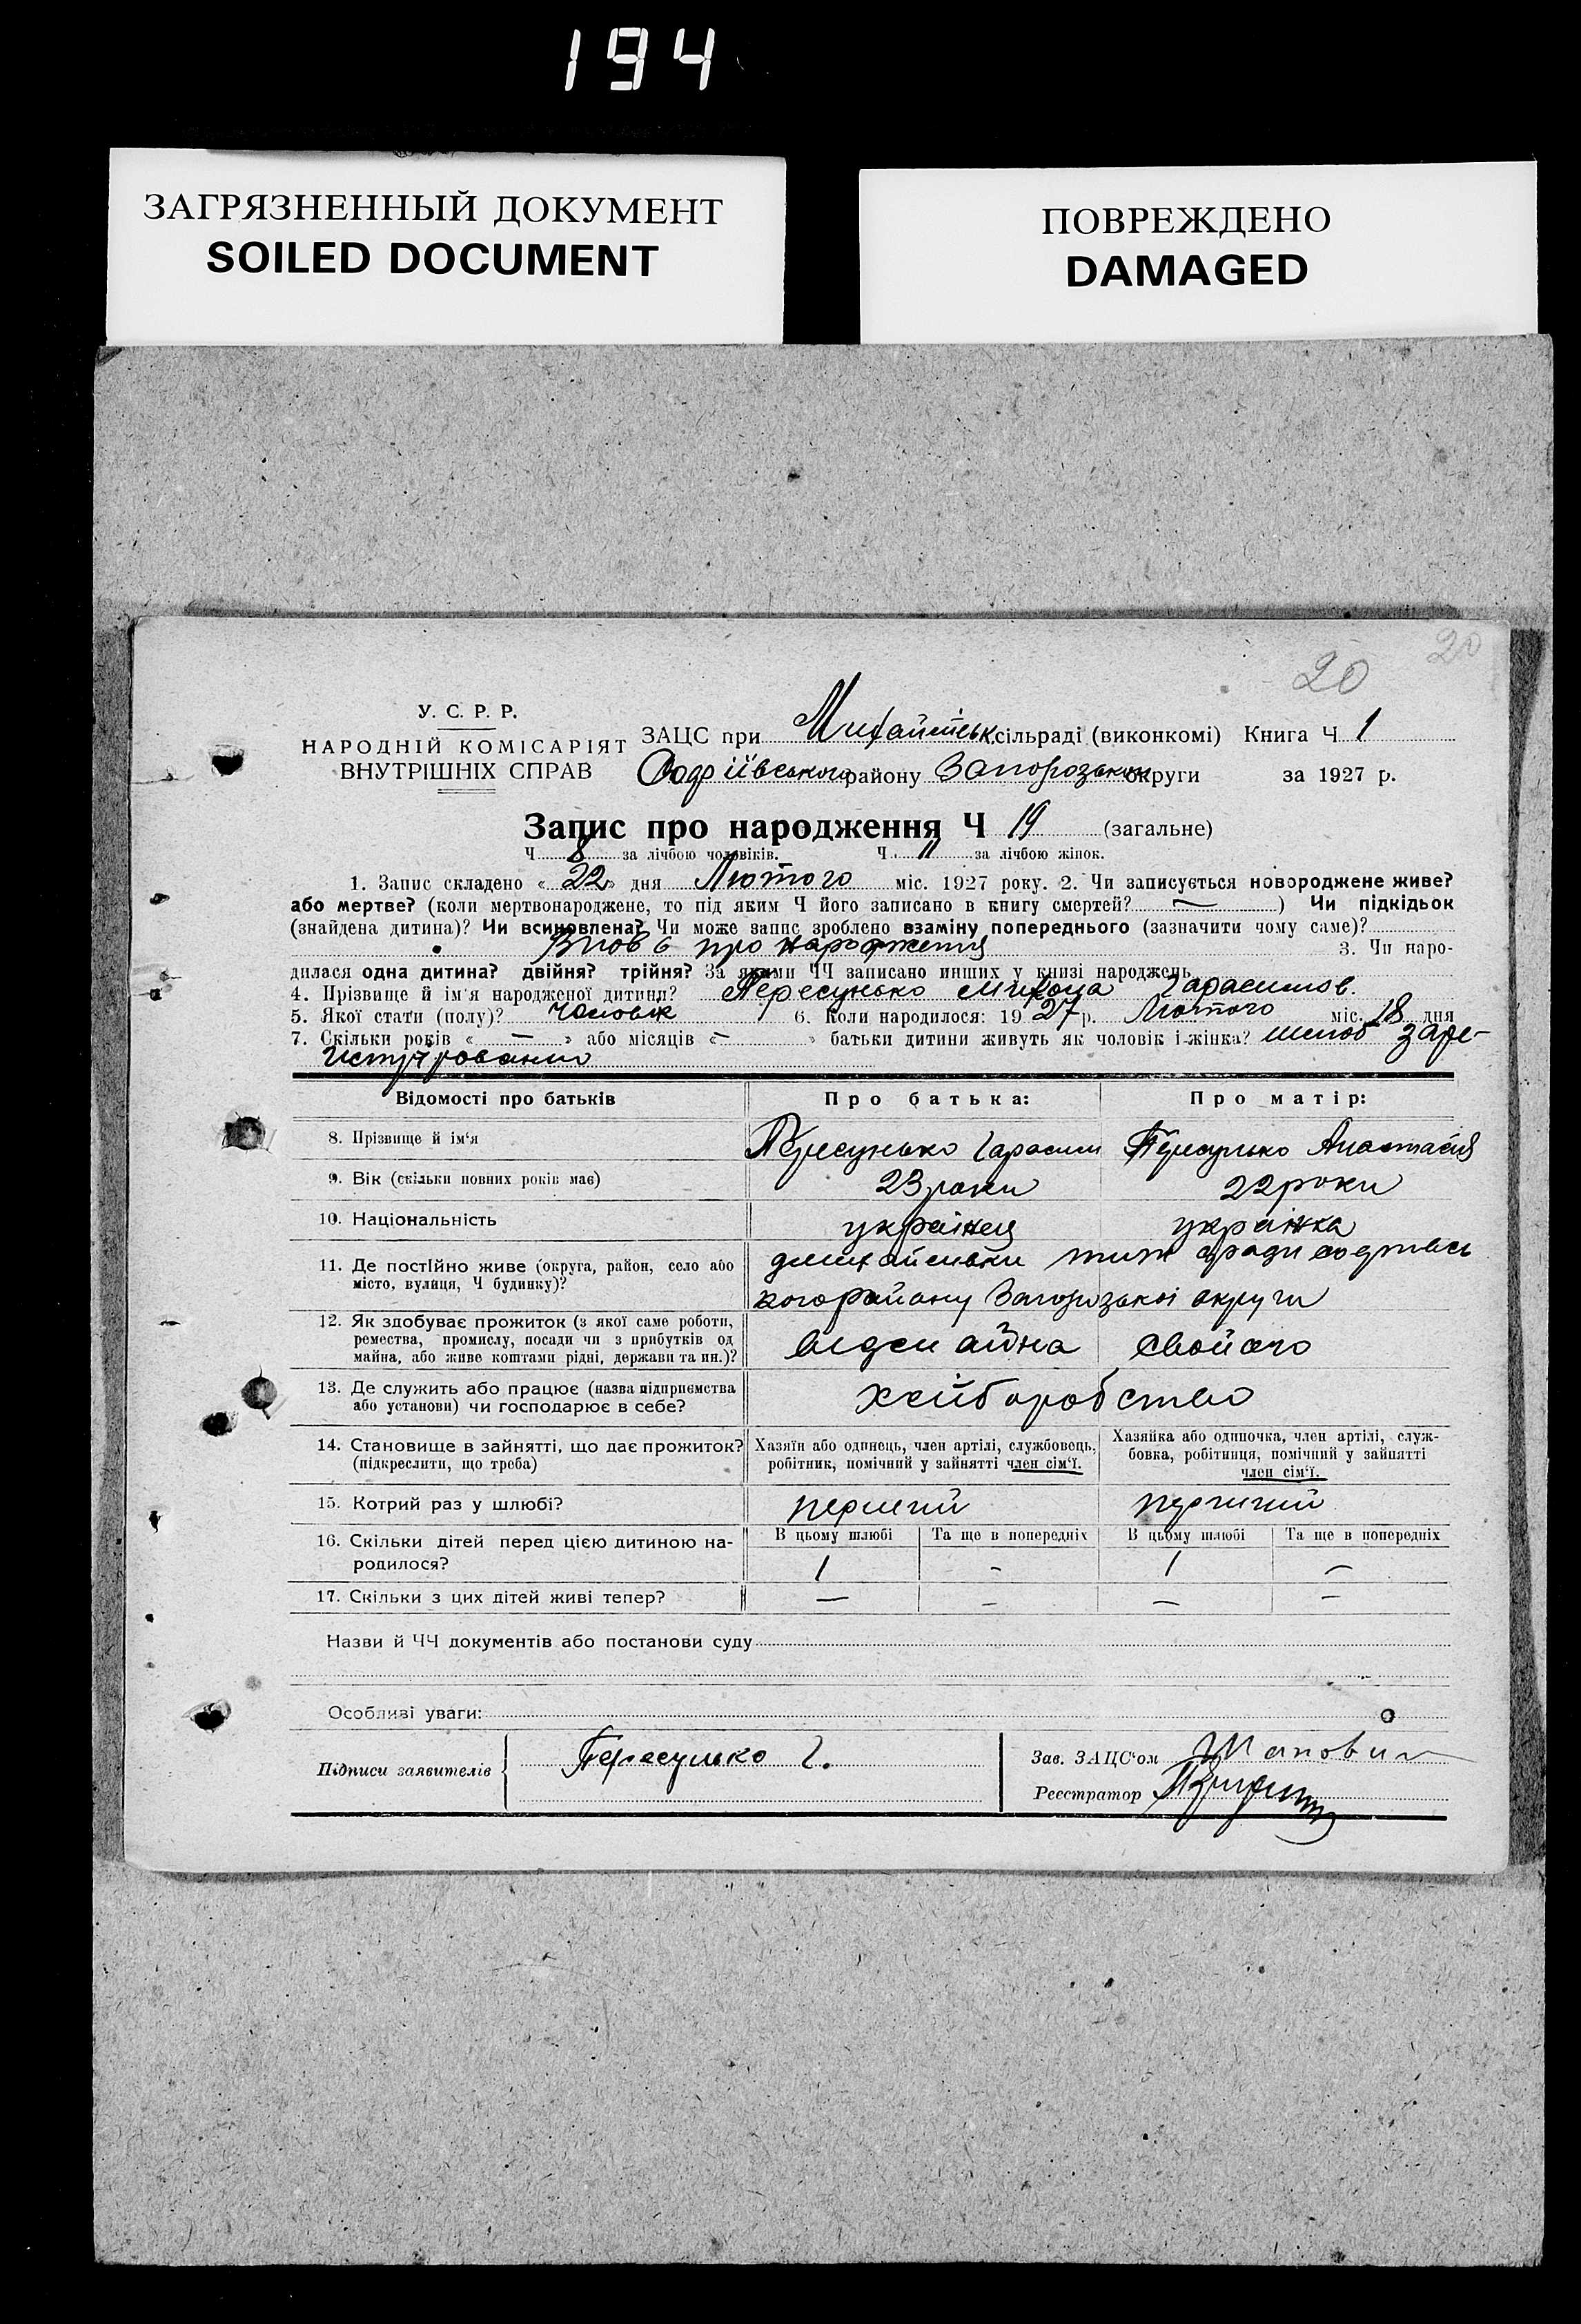 194
ЗАГРЯЗНЕННЫЙ ДОКУМЕНТ
SOILED DOCUMENT
ПОВРЕЖДЕНО
DAMAGED
20
20
У. С. Р. Р.
НАРОДНІЙ КОМІСАРІЯТ
ВНУТРІШНІХ СПРАВ
ЗАЦС при сільраді (виконкомі) Книга Ч 1
району округи за 1927 р.
Запис про народження Ч 19 (загальне)
Ч 8 за лічбою чоловіків. Ч 11 за лічбою жінок.
1. Запис складено « 22 » дня Лютого міс. 1927 року. 2. Чи записується новороджене живе?
або мертве? (коли мертвонароджене, то під яким Ч його записано в книгу смертей? — ) Чи підкідьок
(знайдена дитина)? Чи всиновлена? Чи може запис зроблено взаміну попереднього (зазначити чому саме)?
про народження 3. Чи наро-
дилася одна дитина? двійня? трійня? За якими ЧЧ записано инших у книзі народжень
4. Прізвище й ім'я народженої дитини? Пересунько Микола Гарасимов.
5. Якої статі (полу)? Чоловік 6. Коли народилося: 19 27 р. Лютого міс. 18 дня
7. Скільки років « — » або місяців «–» батьки дитини живуть як чоловік і жінка? шлюб заре-
Відомості про батьків
Про батька:
Про матір:
8. Прізвище й ім'я
Пересунько Гарасим
Пересунько Анастасія
9. Вік (скільки повних років має)
23 роки
22 роки
10. Національність
українец
українка
11. Де постійно живе (округа, район, село або
місто, вулиця, Ч будинку)?
району Запоризької округи
12. Як здобуває прожиток (з якої саме роботи,
ремества, промислу, посади чи з прибутків од
майна, або живе коштами рідні, держави та ин.)?
свойого
13. Де служить або працює (назва підприємства
або установи) чи господарює в себе?
хліборобство
14. Становище в зайнятті, що дає прожиток?
(підкреслити, що треба)
Хазяїн або одинець, член артілі, службовець,
робітник, помічний у зайнятті член сім'ї.
Хазяйка або одиночка, член артілі, служ-
бовка, робітниця, помічний у зайнятті
член сім'ї.
15. Котрий раз у шлюбі?
перший
перший
16. Скільки дітей перед цією дитиною на-
родилося?
В цьому шлюбі Та ще в попередніх В цьому шлюбі Та ще в попередніх
1 – 1 –
17. Скільки з цих дітей живі тепер?
— – — –
Назви й ЧЧ документів або постанови суду
Особливі уваги:
Підписи заявителів
Пересунько Г.
Зав. ЗАЦС'ом
Реєстратор